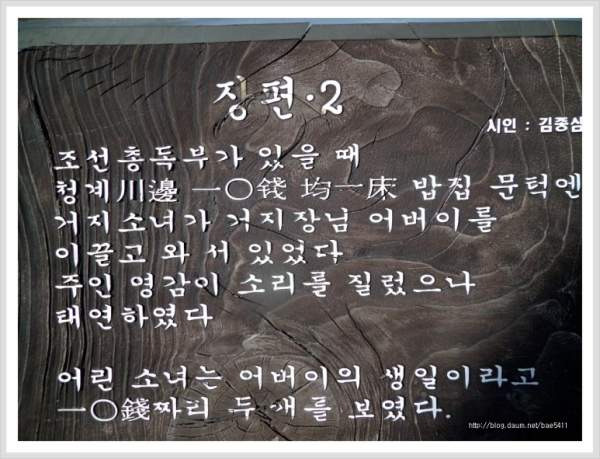 장편·2
시인 : 김종삼
조선총독부가 있을 때
청계川邊 一○錢 均一床 밥집 문턱엔
거지소녀가 거지장님 어버이를
이끌고 와 서 있었다
주인 영감이 소리를 질렀으나
태연하였다
어린 소녀는 어버이의 생일이라고
一○錢짜리 두 개를 보였다.
http://blog.daum.net/bae5411